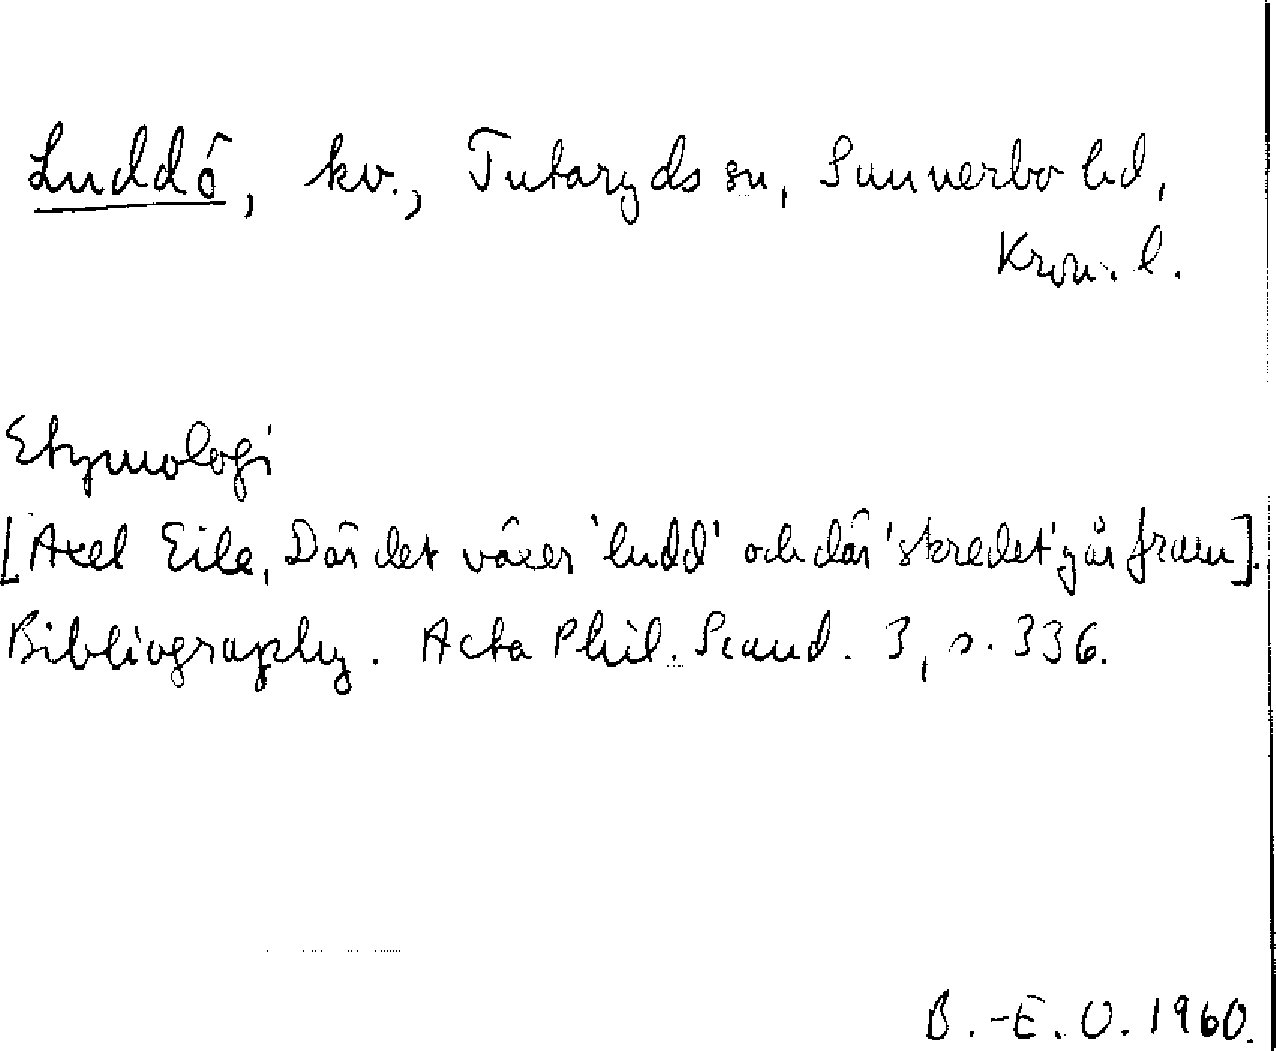 Luddö, kv., Tutaryds sn, Sunnerbo hd,
Kron. l.
Etymologi
[Axel Eile, Där det växer 'ludd' och där 'skredet' går fram].
Bibliography. Acta Phil. Scand. 3, s. 336.
B.-E. O. 1960.